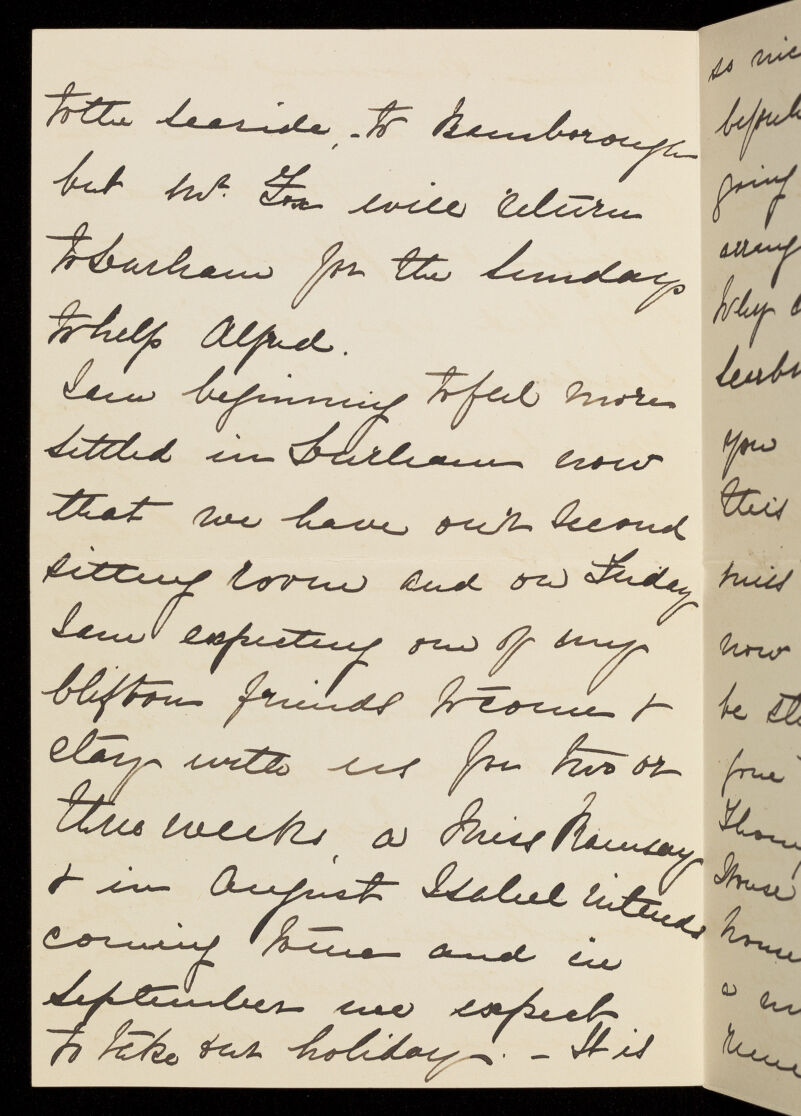 to the seaside, - to Bamborough
but Mr. Fox will return
to Durham for the Sundays
to help Alfred.
I am beginning to feel more
settled in Durham now
that we have our second
sitting room and on Friday
I am expecting one of my
Clifton friends to come &
stay with us for two or
three weeks, a Miss Ramsay
& in August Isabel intends
coming to me and in
September we expect
to take our holiday. - It is
so nic
going
arrang
Why d
you
this
miss
now
be st
House
home
a m